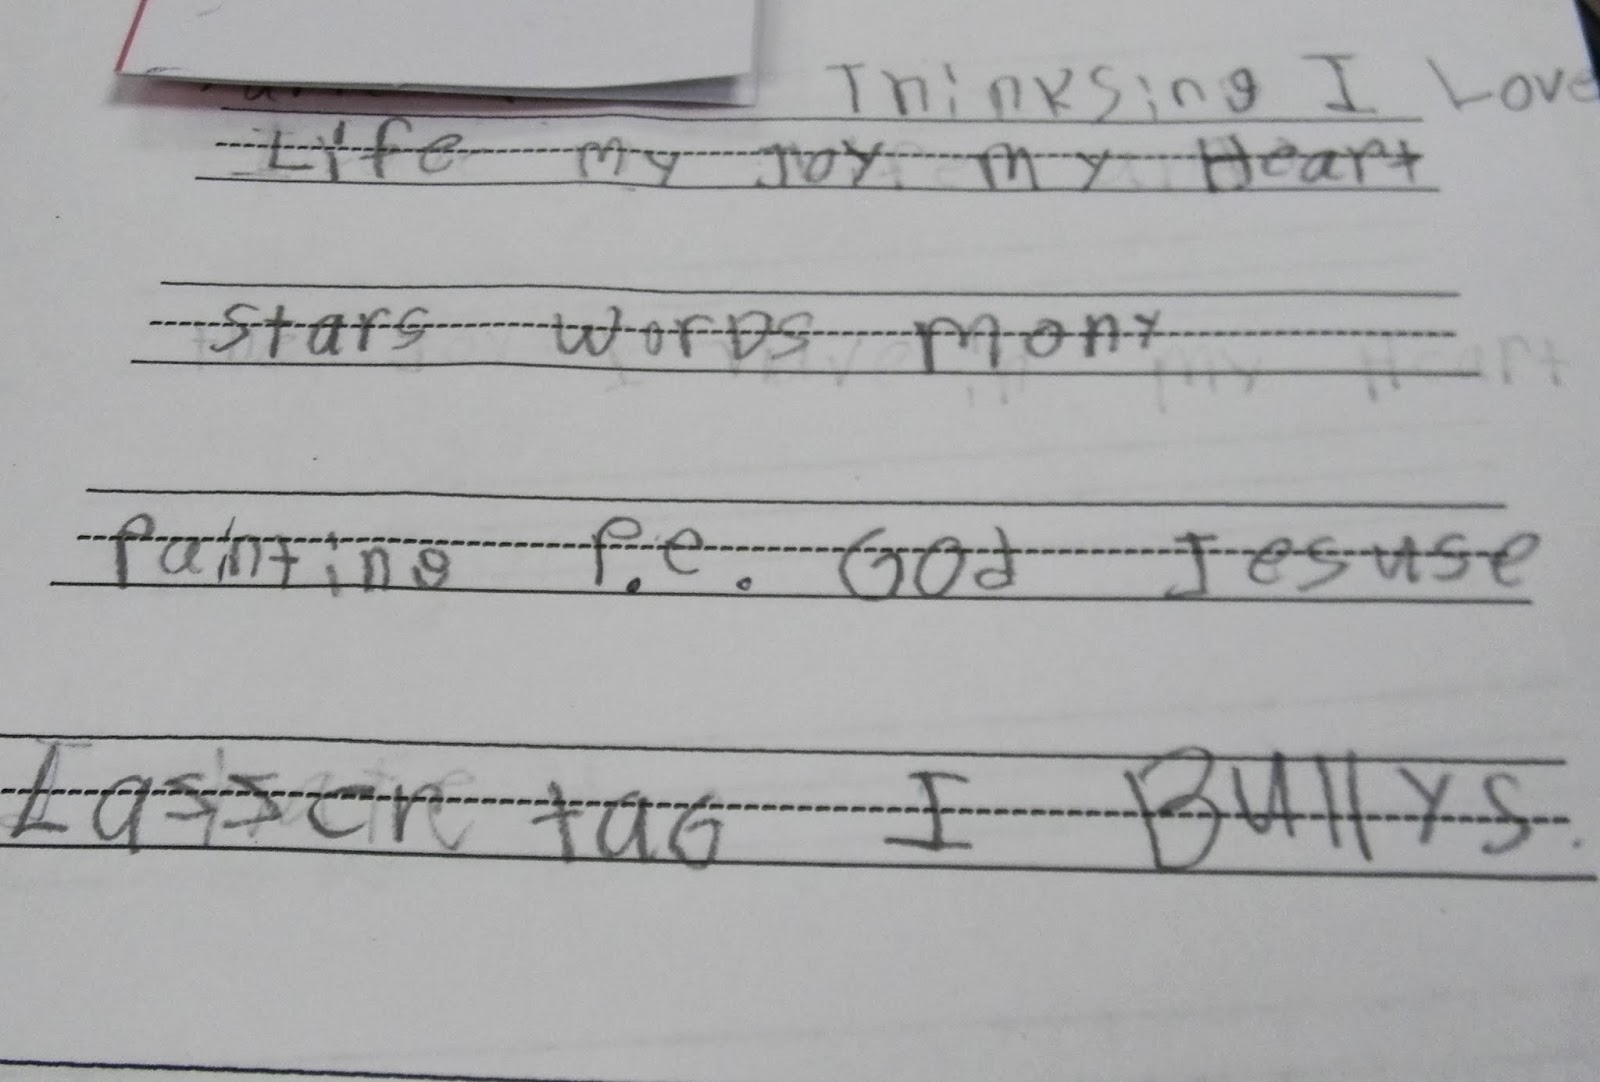 Thinksing I Love
Life my Joy my Heart
Stars words mony
Painting P.e. God Jesuse
Lasser tag I Bullys.